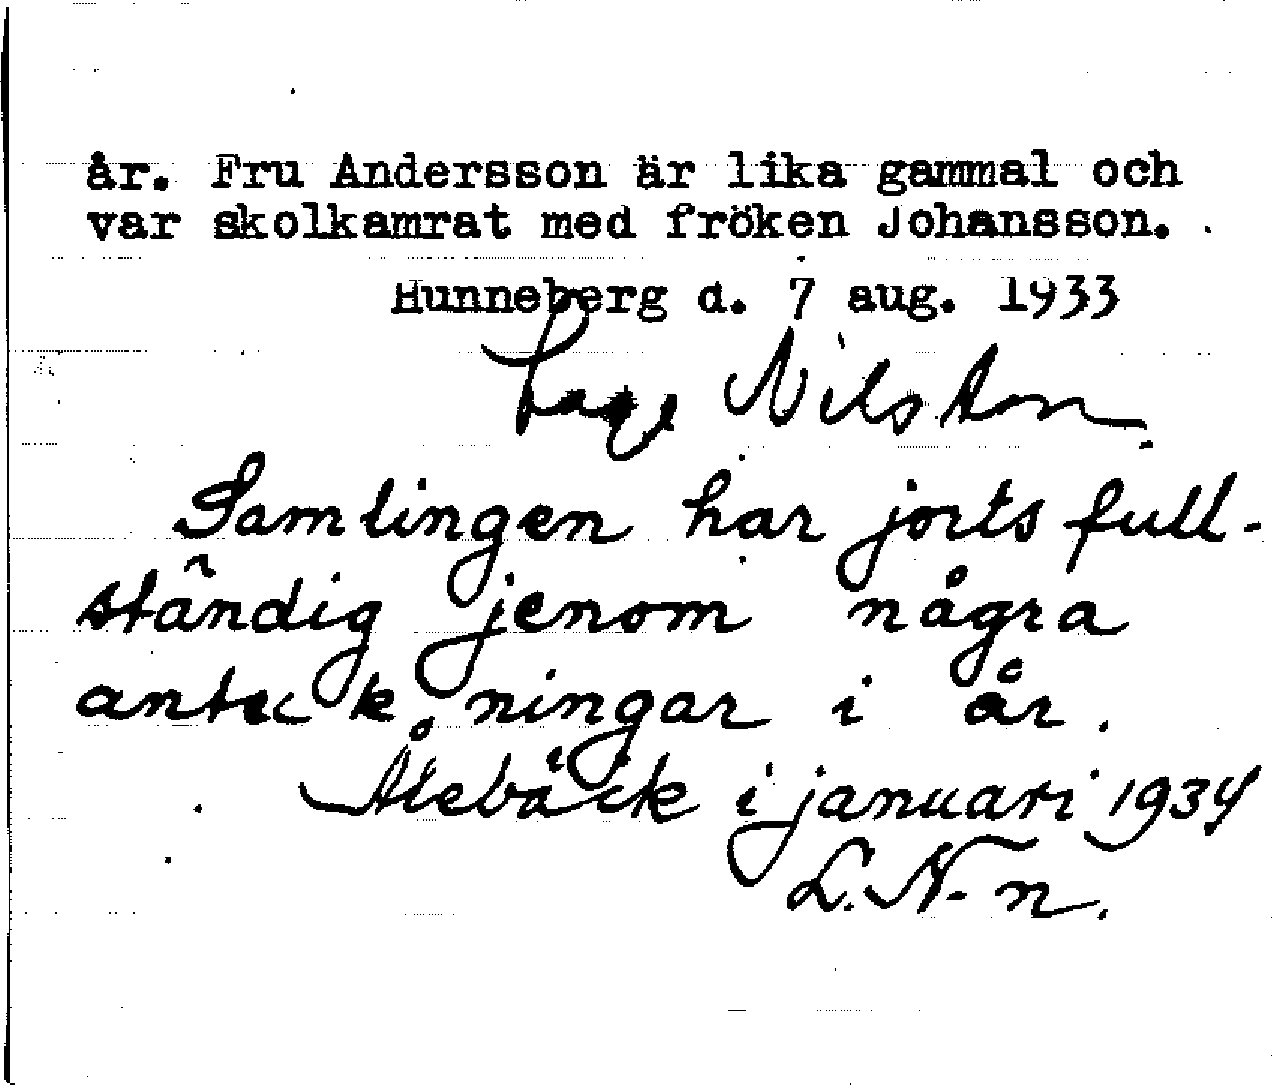 år. Fru Andersson är lika gammal och
var skolkamrat med fröken Johansson.
Hunneberg d. 7 aug. 1933
Lage Nilsson
Samlingen har jorts full-
ständig jenom några
anteckningar i år.
Ålebäck i januari 1934
L. N-n.